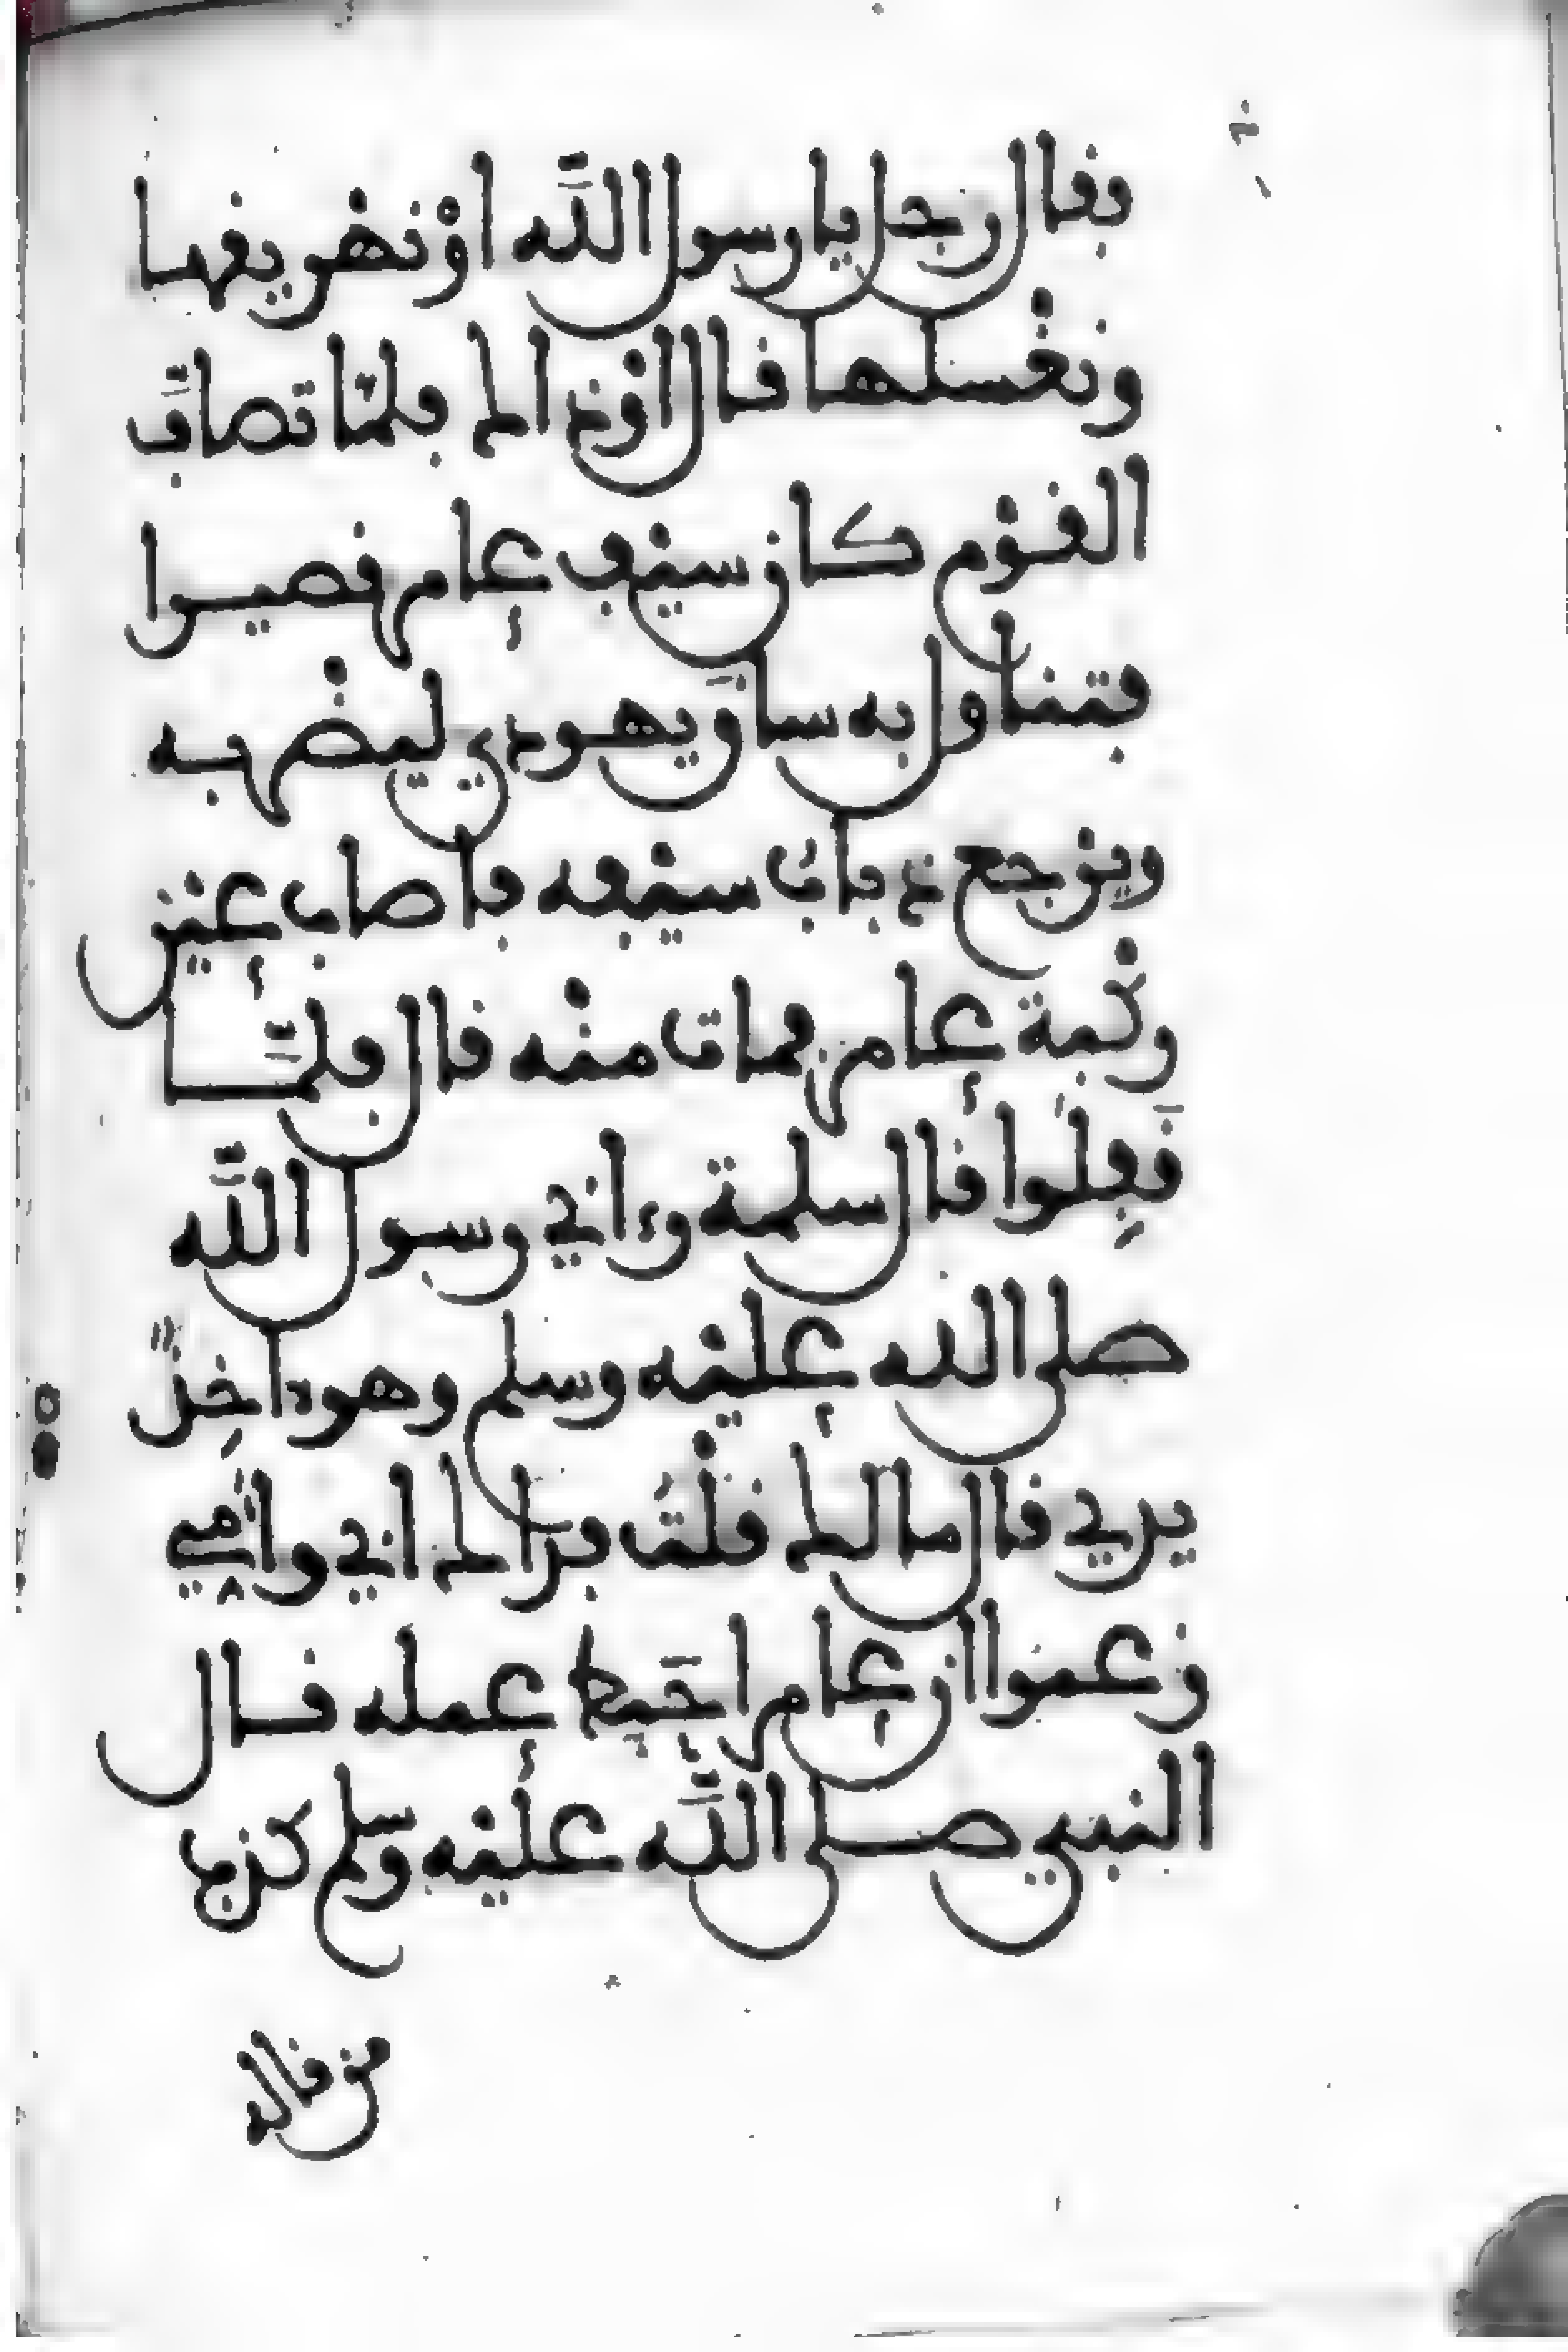 فقال رجل يا رسول الله اوْ نهريفها
ونغْسلها قال اوْ ذالم فلمّا تصافّ
القوْم كان سيْف عامر قصيرا
فتناول به ساق يهودي ليضْربه
ويرجع ذباب سيْفه فأصاب عين
ركْبة عامر فمات منْه قال فلمّا
قفلوا قال سلمة رءاني رسول الله
صلى الله عليْه وسلم وهو ءاخذٌ
بيدي قال مالك قلْتُ فداك ابي وأمّي
زعموا ان عامرا حَبِط عمله قال
النبي صلى الله عليْه وسلم كذب
من قاله